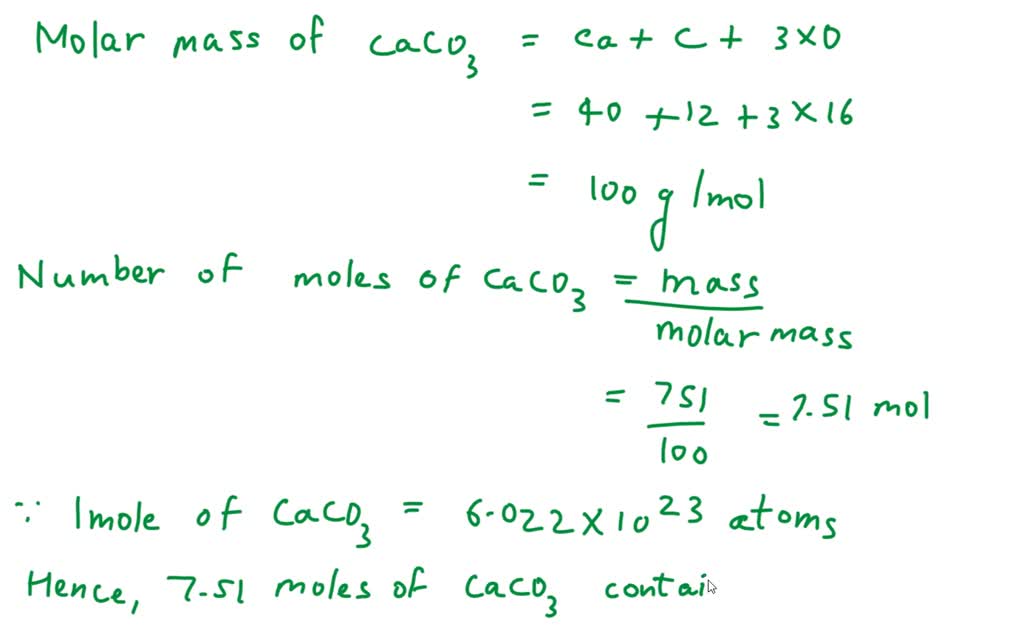 Molar mass of CaCO₃ = Ca + C + 3×O
= 40 + 12 + 3×16
= 100 g/mol
Number of moles of CaCO₃ = mass
molar mass
= 751 = 7.51 mol
100
∵ 1mole of CaCO₃ = 6.022×10²³ atoms
Hence, 7.51 moles of CaCO₃ contai